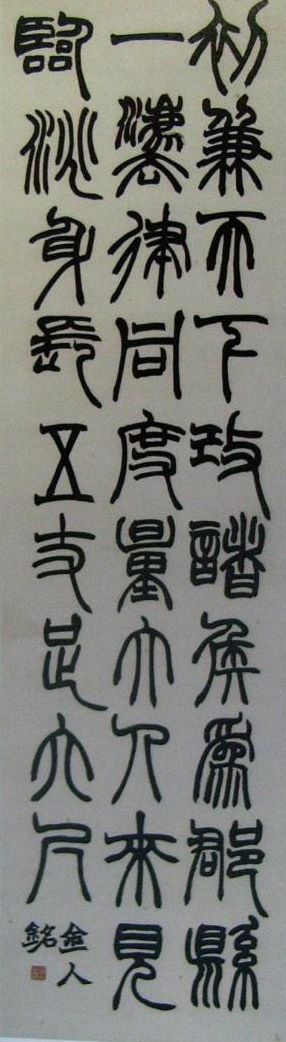 初兼天下改諸侯爲郡縣
一灋律同度量大人來見
臨洮身長五丈足六尺
金人
銘